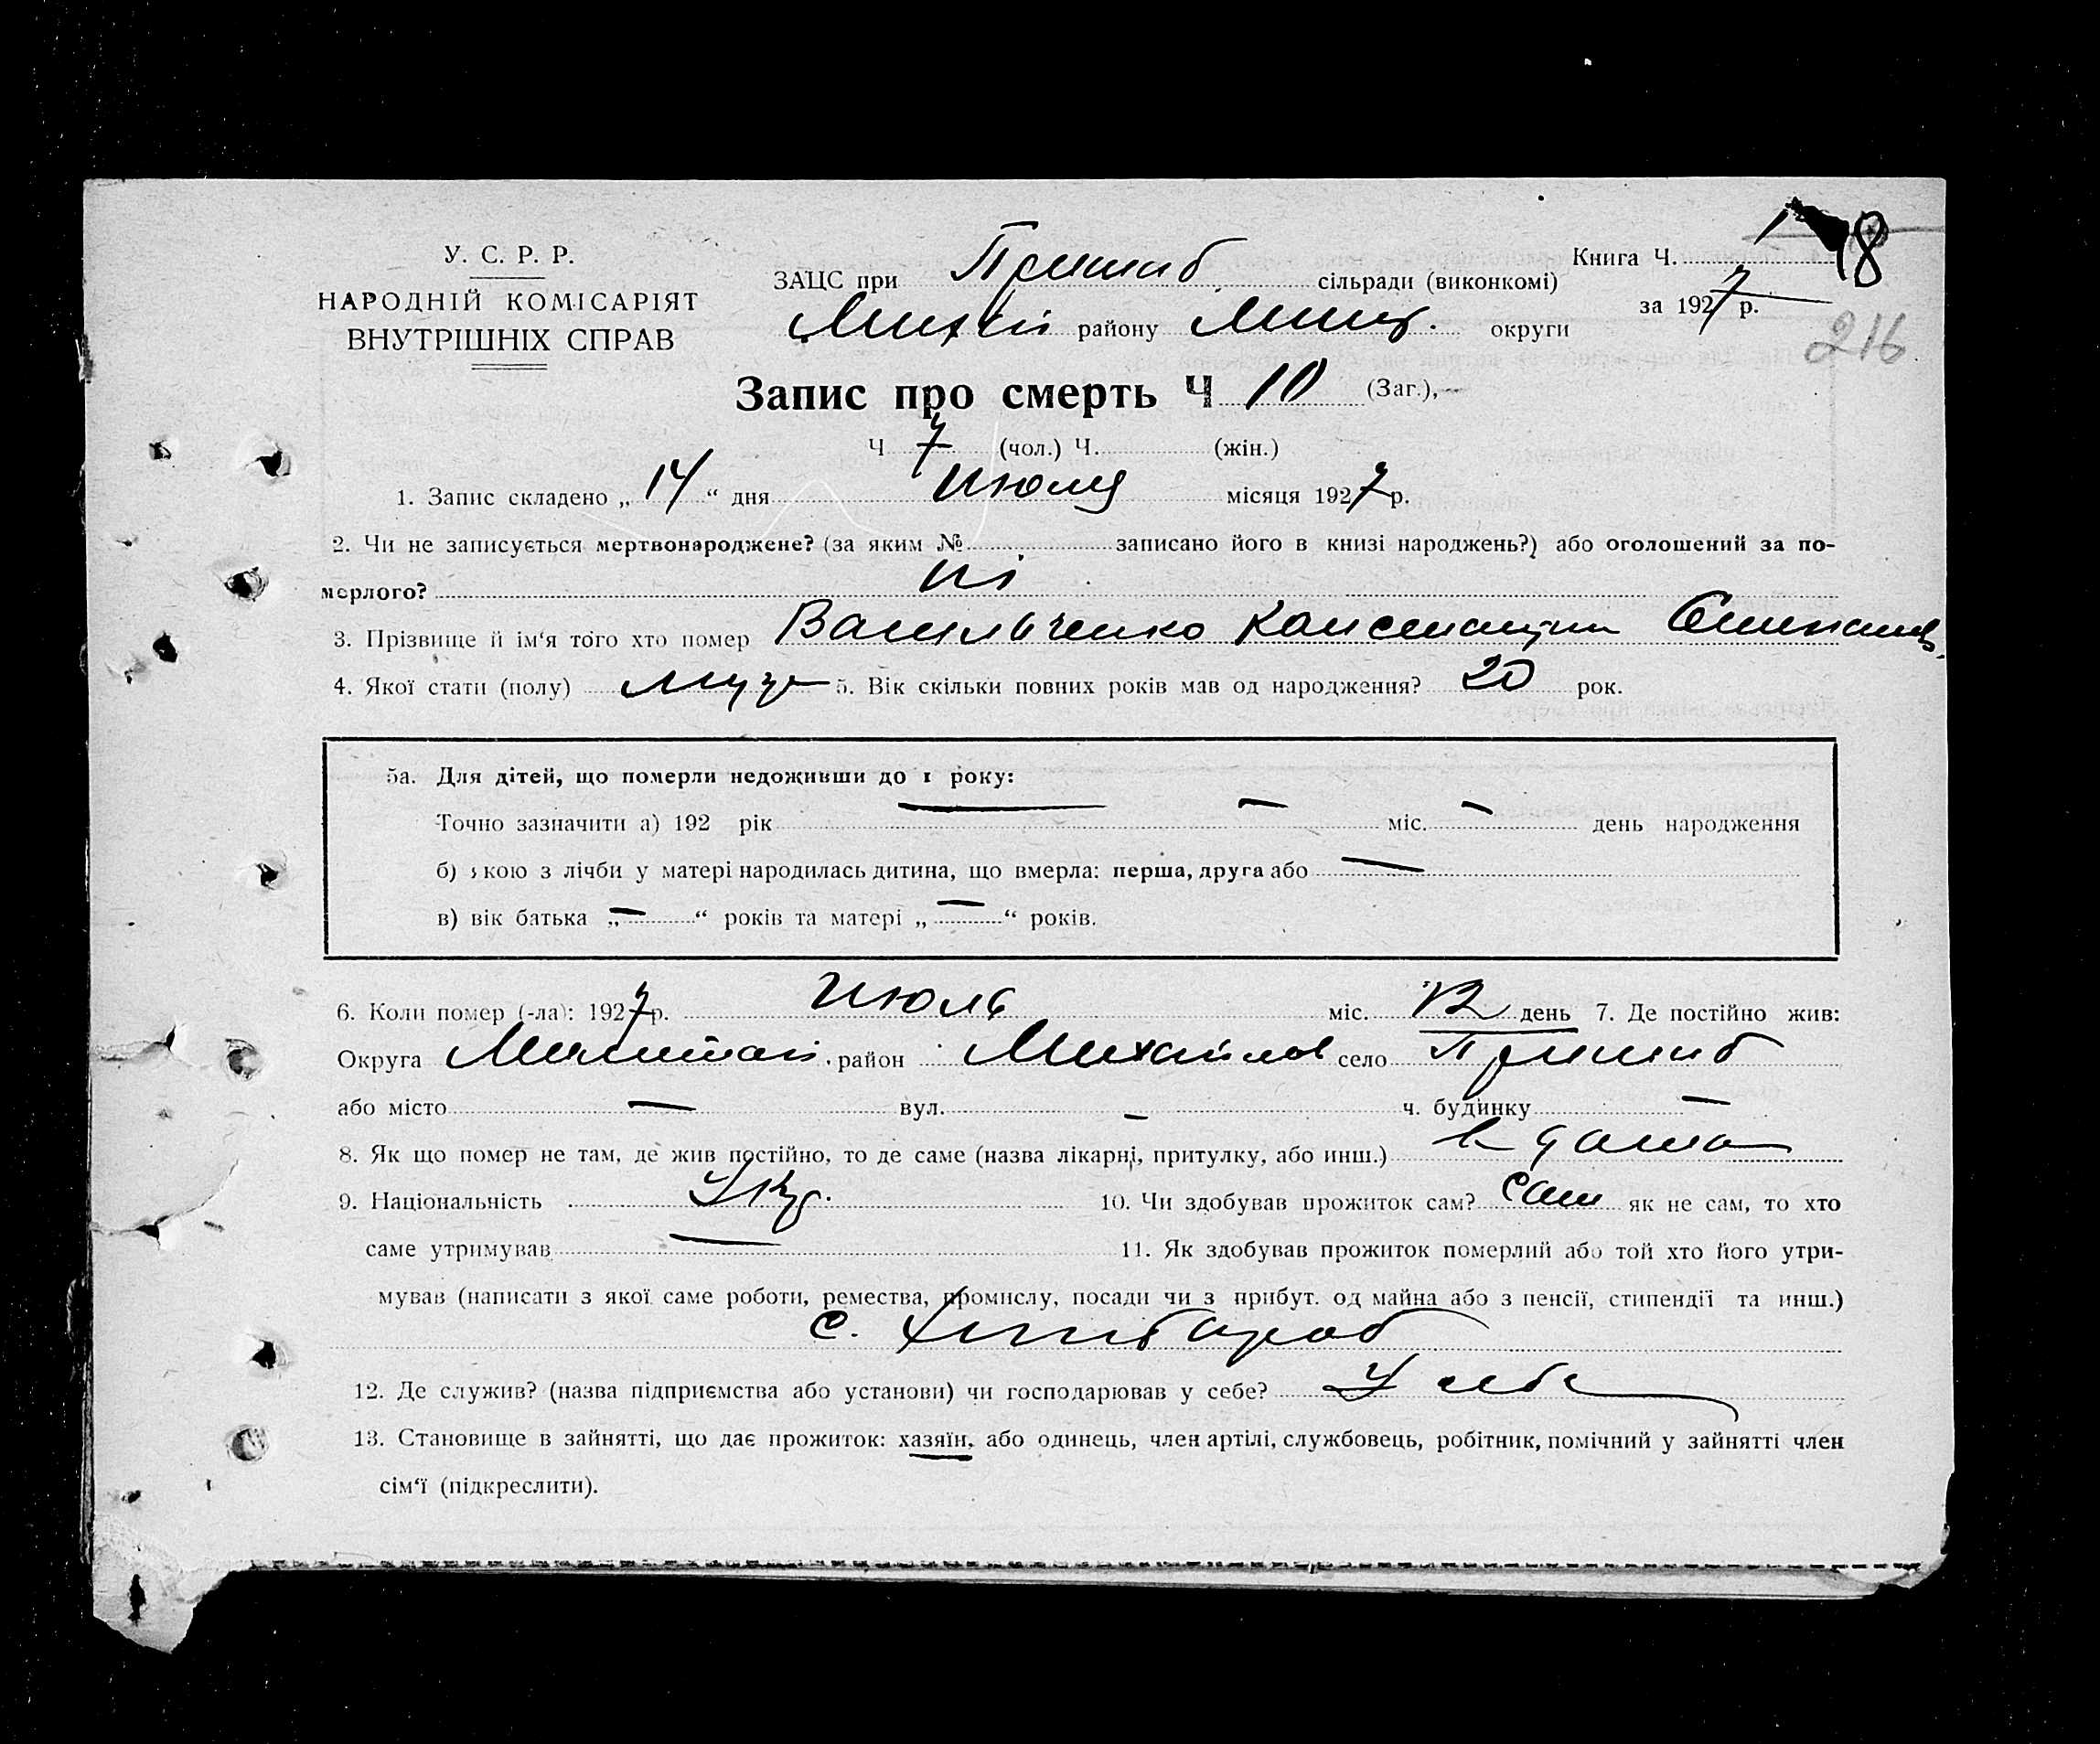 У. С. Р. Р.
НАРОДНІЙ КОМІСАРІЯТ
ВНУТРІШНІХ СПРАВ
Книга Ч. 1 98
за 1927 р.
216
ЗАЦС при Пришиб сільради (виконкомі)
району округи
Запис про смерть Ч 10 (Заг.),
Ч 7 (чол.) Ч. (жін.)
1. Запис складено „ 14 “ дня Июля місяця 1927 р.
2. Чи не записується мертвонароджене? (за яким № записано його в книзі народжень?) або оголошений за по-
мерлого? ні
3. Прізвище й ім‘я того хто помер Васильченко Константин
4. Якої стати (полу) муж 5. Вік скільки повних років мав од народження? 20 рок.
5а. Для дітей, що померли недоживши до 1 року:
Точно зазначити а) 192 рік — — міс. — день народження
б) якою з лічби у матері народилась дитина, що вмерла: перша, друга або —
в) вік батька „ — “ років та матері „ — “ років.
6. Коли помер (-ла): 1927 р. Июль міс. 12 день 7. Де постійно жив:
Округа район Михайлов село Пришиб
або місто — вул. — ч. будинку —
8. Як що помер не там, де жив постійно, то де саме (назва лікарні, притулку, або инш.) дома
9. Національність Укр. 10. Чи здобував прожиток сам? сам як не сам, то хто
саме утримував — 11. Як здобував прожиток померлий або той хто його утри-
мував (написати з якої саме роботи, ремества, промислу, посади чи з прибут. од майна або з пенсії, стипендії та инш.)
с. хлибороб
12. Де служив? (назва підприємства або установи) чи господарював у себе? У себе
13. Становище в зайнятті, що дає прожиток: хазяїн, або одинець, член артілі, службовець, робітник, помічний у зайнятті член
сім‘ї (підкреслити).